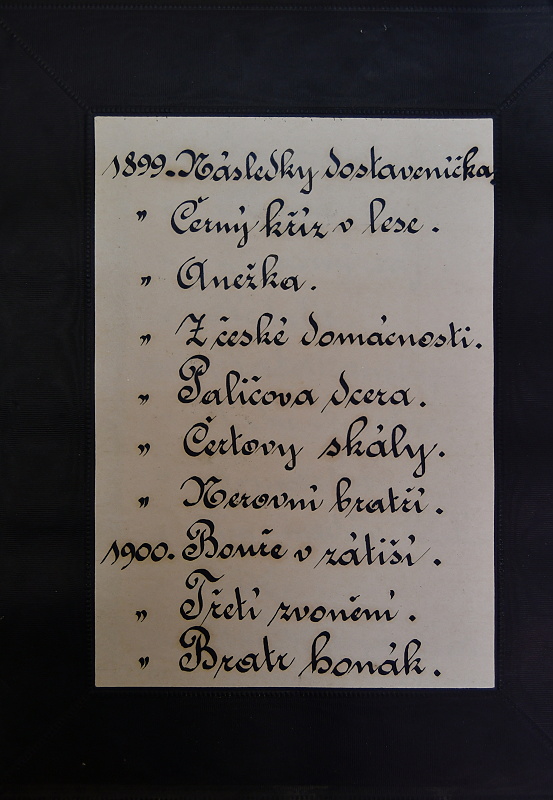 1899. Následky dostaveníčka,
„ Černý kříž v lese.
„ Anežka.
„ Z české domácnosti.
„ Paličova dcera.
„ Čertovy skály.
„ Nerovní bratří.
1900. Bouře v zátiší.
„ Třetí zvonění.
„ Bratr honák.